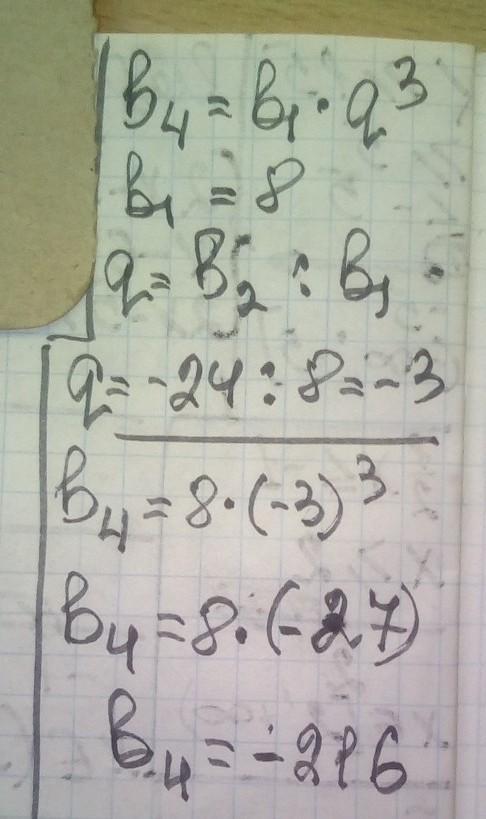 b₄ = b₁ · q³
b₁ = 8
q = b₂ : b₁
q = -24 : 8 = -3
b₄ = 8 · (-3)³
b₄ = 8 · (-27)
b₄ = -216